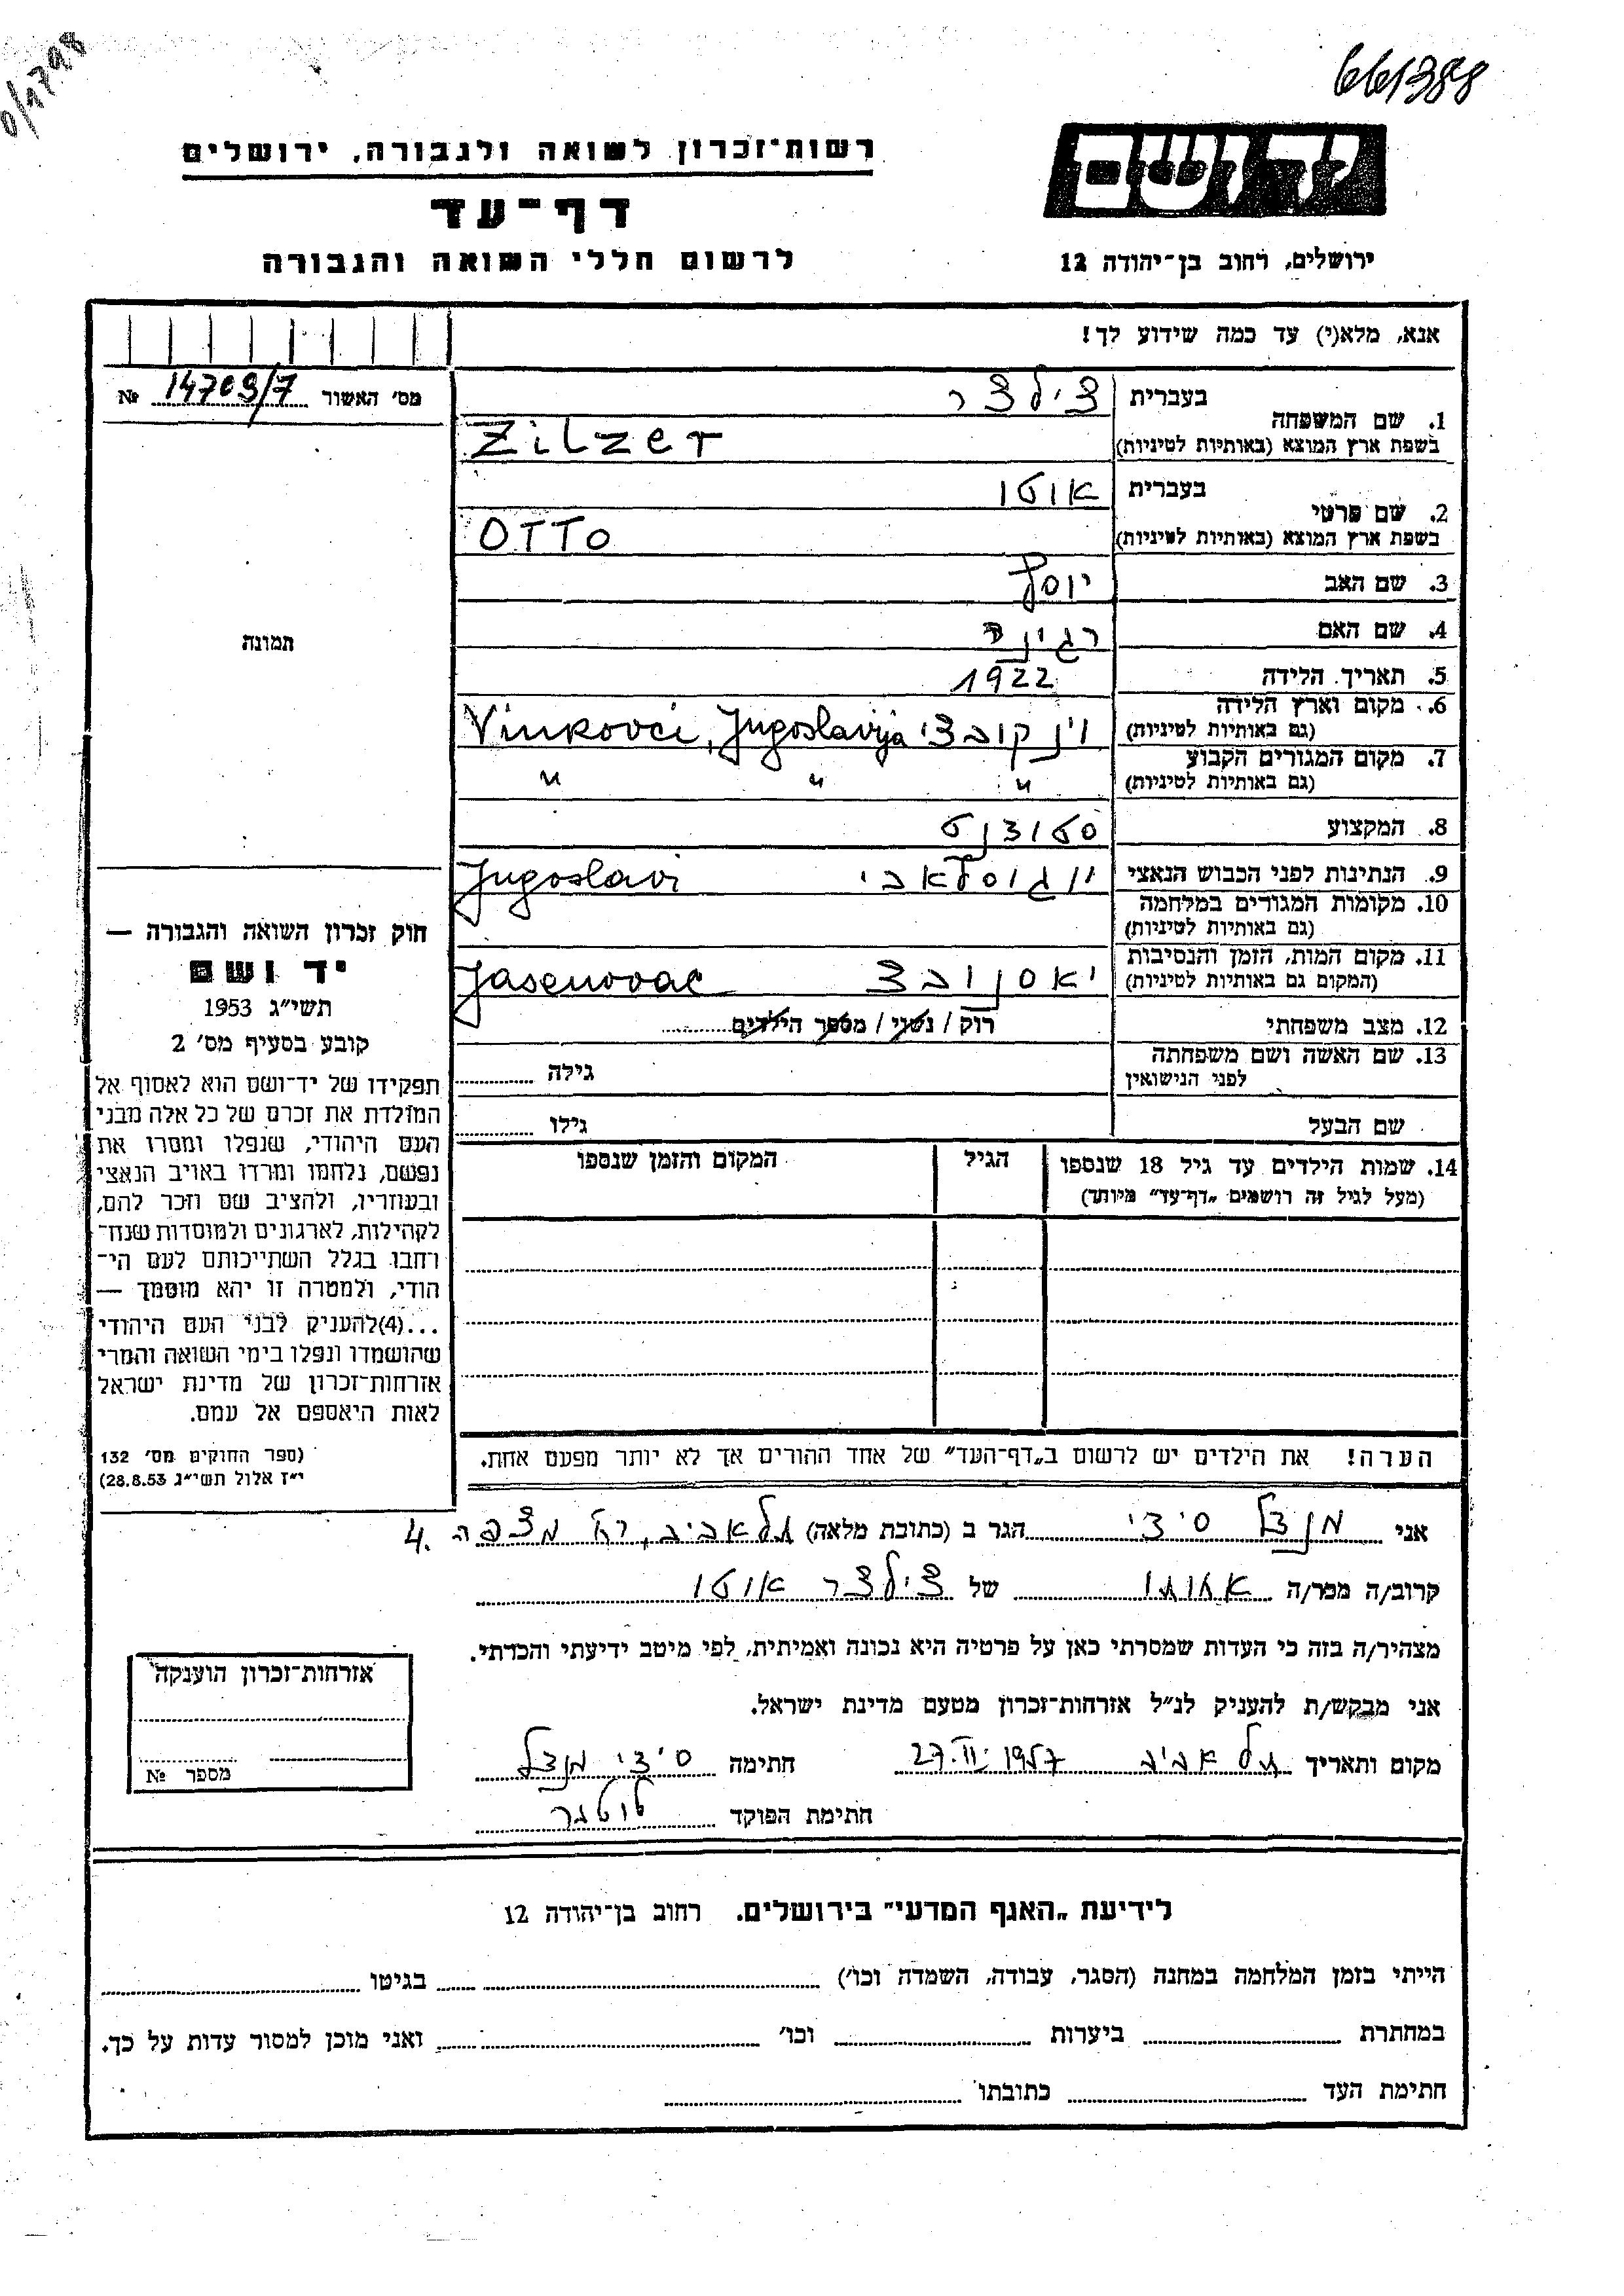 661388
יד ושם
רשות־זכרון לשואה ולגבורה, ירושלים
דף־עד
לרשום חללי השואה והגבורה
ירושלים, רחוב בן־יהודה 12
אנא, מלא(י) עד כמה שידוע לך!
מס׳ האשור 14709/7 №
תמונה
1. שם המשפחה
בעברית צילצר
בשפת ארץ המוצא (באותיות לטיניות) Zilzer
2. שם פרטי
בעברית אוטו
בשפת ארץ המוצא (באותיות לטיניות) OTTO
3. שם האב יוסף
4. שם האם רגינה
5. תאריך הלידה 1922
6. מקום וארץ הלידה
(גם באותיות לטיניות) וינקובצי Vinkovci, Jugoslavija
7. מקום המגורים הקבוע
(גם באותיות לטיניות) " " "
8. המקצוע סטודנט
9. הנתינות לפני הכבוש הנאצי יוגוסלאבי Jugoslavi
10. מקומות המגורים במלחמה
(גם באותיות לטיניות)
11. מקום המות, הזמן והנסיבות
(המקום גם באותיות לטיניות) יאסנובצ Jasenovac
12. מצב משפחתי רוק / נשוי / מספר הילדים
13. שם האשה ושם משפחתה
לפני הנישואין גילה
שם הבעל גילו
14. שמות הילדים עד גיל 18 שנספו הגיל המקום והזמן שנספו
(מעל לגיל זה רושמים „דף־עד" מיוחד)
חוק זכרון השואה והגבורה —
יד ושם
תשי״ג 1953
קובע בסעיף מס׳ 2
תפקידו של יד־ושם הוא לאסוף אל
המולדת את זכרם של כל אלה מבני
העם היהודי, שנפלו ומסרו את
נפשם, נלחמו ומרדו באויב הנאצי
ובעוזריו, ולהציב שם וזכר להם,
לקהילות, לארגונים ולמוסדות שנח־
רחבו בגלל השתייכותם לעם הי־
הודי, ולמטרה זו יהא מוסמך —
...(4)להעניק לבני העם היהודי
שהושמדו ונפלו בימי השואה והמרי
אזרחות־זכרון של מדינת ישראל
לאות היאספם אל עמם.
(ספר החוקים מס׳ 132
י״ז אלול תשי״ג 28.8.53)
הערה! את הילדים יש לרשום ב„דף־העד" של אחד ההורים אך לא יותר מפעם אחת.
אני מנדל סידי הגר ב (כתובת מלאה) תל אביב, רח' מצפה 4.
קרוב/ה מכר/ה אחותו של צילצר אוטו
מצהיר/ה בזה כי העדות שמסרתי כאן על פרטיה היא נכונה ואמיתית, לפי מיטב ידיעתי והכרתי.
אני מבקש/ת להעניק לנ״ל אזרחות־זכרון מטעם מדינת ישראל.
מקום ותאריך תל אביב 27.II.1957 חתימה סידי מנדל
חתימת הפוקד
אזרחות־זכרון הוענקה
מספר №
לידיעת „האגף המדעי" בירושלים. רחוב בן־יהודה 12
הייתי בזמן המלחמה במחנה (הסגר, עבודה, השמדה וכו׳) בגיטו
במחתרת ביערות וכו׳ ואני מוכן למסור עדות על כך.
חתימת העד כתובתו